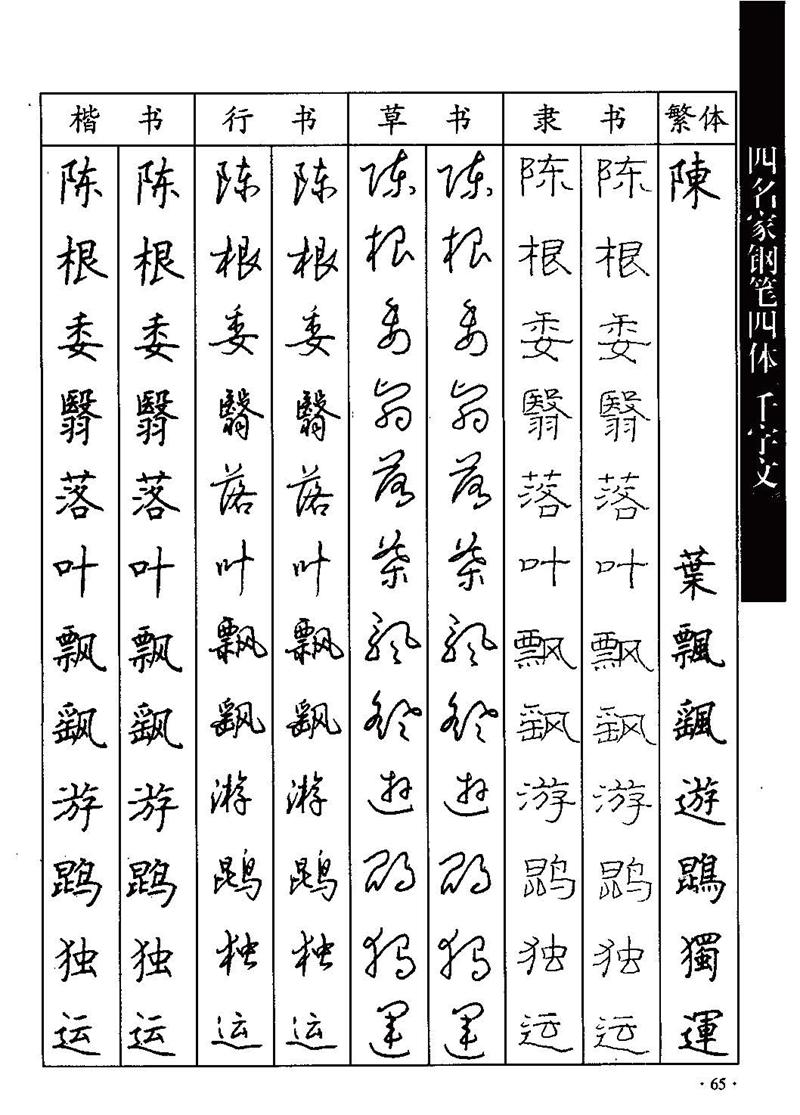 楷书 行书 草书 隶书 繁体
陈 陈 陈 陈 陈 陈 陈 陈 陳
根 根 根 根 根 根 根 根
委 委 委 委 委 委 委 委
翳 翳 翳 翳 翳 翳 翳 翳
落 落 落 落 落 落 落 落
叶 叶 叶 叶 葉 葉 叶 叶 葉
飘 飘 飘 飘 飘 飘 飘 飘 飄
飖 飖 飖 飖 飖 飖 飖 飖 颻
游 游 游 游 遊 遊 游 游 遊
鹍 鹍 鹍 鹍 鹍 鹍 鹍 鹍 鵾
独 独 独 独 独 独 独 独 獨
运 运 运 运 運 運 运 运 運
四名家钢笔四体千字文
·65·